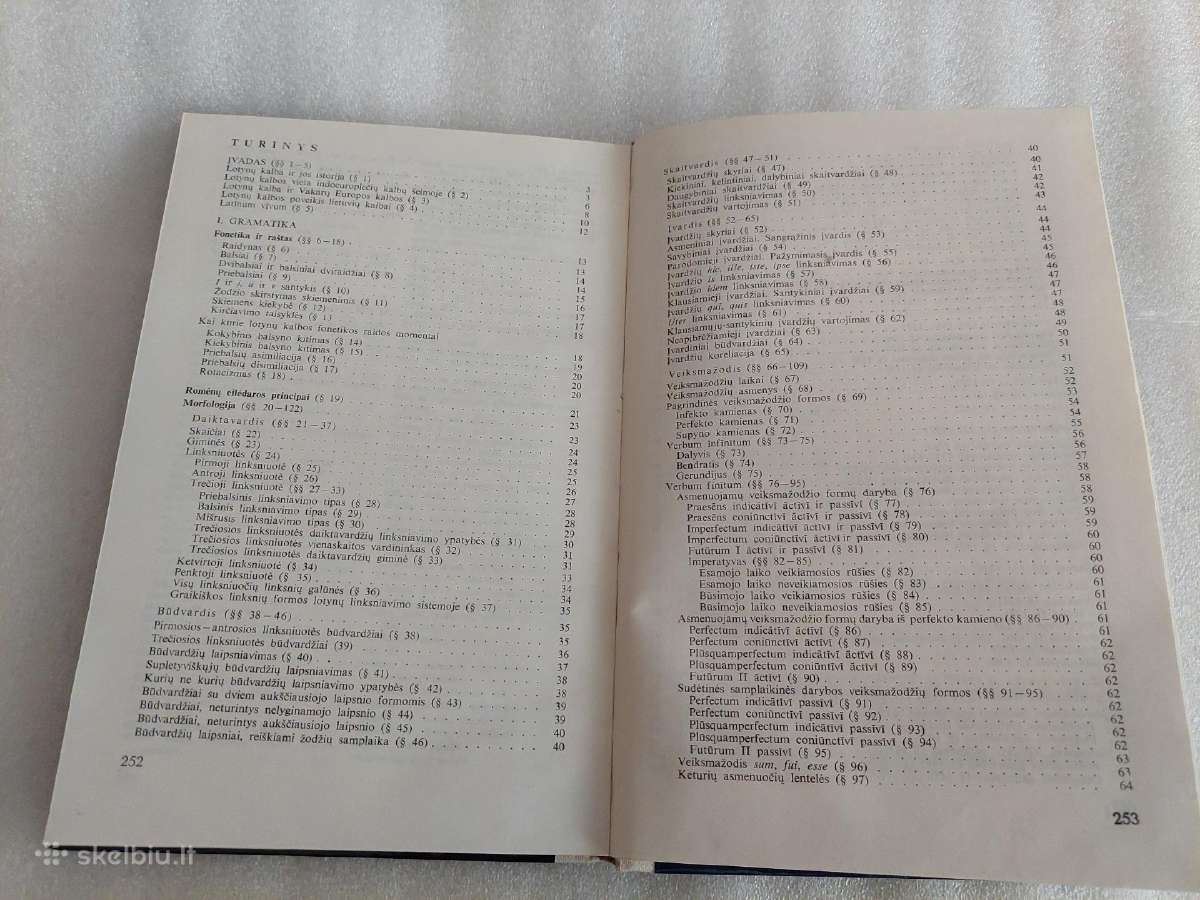 TURINYS
ĮVADAS (§§ 1—5)
Lotynų kalba ir jos istorija (§ 1) 3
Lotynų kalbos vieta indoeuropiečių kalbų šeimoje (§ 2)
Lotynų kalba ir Vakarų Europos kalbos (§ 3) 6
Lotynų kalbos poveikis lietuvių kalbai (§ 4) 8
Latinum vivum (§ 5) 10
I. GRAMATIKA 12
Fonetika ir raštas (§§ 6—18)
Raidynas (§ 6) 13
Balsiai (§ 7) 13
Dvibalsiai ir balsiniai dviraidžiai (§ 8) 14
Priebalsiai (§ 9) 14
I ir i, u ir v santykis (§ 10) 15
Žodžio skirstymas skiemenimis (§ 11) 16
Skiemens kiekybė (§ 12) 17
Kirčiavimo taisyklės (§ 1 17
Kai kurie lotynų kalbos fonetikos raidos momentai 18
Kokybinis balsyno kitimas (§ 14)
Kiekybinis balsyno kitimas (§ 15) 18
Priebalsių asimiliacija (§ 16) 19
Priebalsių disimiliacija (§ 17) 20
Rotacizmas (§ 18) 20
Romėnų eilėdaros principai (§ 19) 20
Morfologija (§§ 20—122) 21
Daiktavardis (§§ 21—37) 23
Skaičiai (§ 22) 23
Giminės (§ 23) 24
Linksniuotės (§ 24) 24
Pirmoji linksniuotė (§ 25) 25
Antroji linksniuotė (§ 26) 25
Trečioji linksniuotė (§§ 27—33) 26
Priebalsinis linksniavimo tipas (§ 28) 27
Balsinis linksniavimo tipas (§ 29) 28
Mišrusis linksniavimo tipas (§ 30) 28
Trečiosios linksniuotės daiktavardžių linksniavimo ypatybės (§ 31) 29
Trečiosios linksniuotės vienaskaitos vardininkas (§ 32) 30
Trečiosios linksniuotės daiktavardžių giminė (§ 33) 31
Ketvirtoji linksniuotė (§ 34) 31
Penktoji linksniuotė (§ 35) 33
Visų linksniuočių linksnių galūnės (§ 36) 34
Graikiškos linksnių formos lotynų linksniavimo sistemoje (§ 37) 34
Būdvardis (§§ 38—46) 35
Pirmosios—antrosios linksniuotės būdvardžiai (§ 38) 35
Trečiosios linksniuotės būdvardžiai (39) 35
Būdvardžių laipsniavimas (§ 40) 36
Supletyviškųjų būdvardžių laipsniavimas (§ 41) 37
Kurių ne kurių būdvardžių laipsniavimo ypatybės (§ 42) 38
Būdvardžiai su dviem aukščiausiojo laipsnio formomis (§ 43) 38
Būdvardžiai, neturintys nelyginamojo laipsnio (§ 44) 39
Būdvardžiai, neturintys aukščiausiojo laipsnio (§ 45) 39
Būdvardžių laipsniai, reiškiami žodžių samplaika (§ 46) 40
40
252
Skaitvardis (§§ 47—51) 40
Skaitvardžių skyriai (§ 47) 40
Kiekiniai, kelintiniai, dalybiniai skaitvardžiai (§ 48) 41
Daugybiniai skaitvardžiai (§ 49) 42
Skaitvardžių linksniavimas (§ 50) 42
Skaitvardžių vartojimas (§ 51) 43
Įvardis (§§ 52—65) 44
Įvardžių skyriai (§ 52) 44
Asmeniniai įvardžiai. Sangrąžinis įvardis (§ 53) 44
Savybiniai įvardžiai (§ 54) 45
Parodomieji įvardžiai. Pažymimasis įvardis (§ 55) 45
Įvardžių hic, ille, iste, ipse linksniavimas (§ 56) 46
Įvardžio is linksniavimas (§ 57) 46
Įvardžio idem linksniavimas (§ 58) 47
Klausiamieji įvardžiai. Santykiniai įvardžiai (§ 59) 47
Įvardžių qui, quis linksniavimas (§ 60) 47
Uter linksniavimas (§ 61) 48
Klausiamųjų-santykinių įvardžių vartojimas (§ 62) 48
Neapibrėžiamieji įvardžiai (§ 63) 49
Įvardiniai būdvardžiai (§ 64) 50
Įvardžių koreliacija (§ 65) 51
Veiksmažodis (§§ 66—109) 51
Veiksmažodžių laikai (§ 67) 52
Veiksmažodžių asmenys (§ 68) 52
Pagrindinės veiksmažodžio formos (§ 69) 53
Infekto kamienas (§ 70) 54
Perfekto kamienas (§ 71) 54
Supyno kamienas (§ 72) 55
Verbum infinitum (§§ 73—75) 56
Dalyvis (§ 73) 56
Bendratis (§ 74) 57
Gerundijus (§ 75) 58
Verbum finitum (§§ 76—95) 58
Asmenuojamų veiksmažodžio formų daryba (§ 76) 59
Praesēns indicātīvī āctīvī ir passīvī (§ 77) 59
Praesēns coniūnctīvī āctīvī ir passīvī (§ 78) 59
Imperfectum indicātīvī āctīvī ir passīvī (§ 79)
Imperfectum coniūnctīvī āctīvī ir passīvī (§ 80) 60
Futūrum I āctīvī ir passīvī (§ 81) 60
Imperatyvas (§§ 82—85) 60
Esamojo laiko veikiamosios rūšies (§ 82) 60
Esamojo laiko neveikiamosios rūšies (§ 83) 61
Būsimojo laiko veikiamosios rūšies (§ 84) 61
Būsimojo laiko neveikiamosios rūšies (§ 85) 61
Asmenuojamų veiksmažodžio formų daryba iš perfekto kamieno (§§ 86—90) 61
Perfectum indicātīvī āctīvī (§ 86) 61
Perfectum coniūnctīvī āctīvī (§ 87) 62
Plūsquamperfectum indicātīvī āctīvī (§ 88) 62
Plūsquamperfectum coniūnctīvī āctīvī (§ 89) 62
Futūrum II āctīvī (§ 90) 62
Sudėtinės samplaikinės darybos veiksmažodžių formos (§§ 91—95) 62
Perfectum indicātīvī passīvī (§ 91) 62
Perfectum coniūnctīvī passīvī (§ 92) 62
Plūsquamperfectum indicātīvī passīvī (§ 93) 62
Plūsquamperfectum coniūnctīvī passīvī (§ 94) 62
Futūrum II passīvī (§ 95) 62
Veiksmažodis sum, fui, esse (§ 96) 63
Keturių asmenuočių lentelės (§ 97) 63
64
253
skelbiu.lt